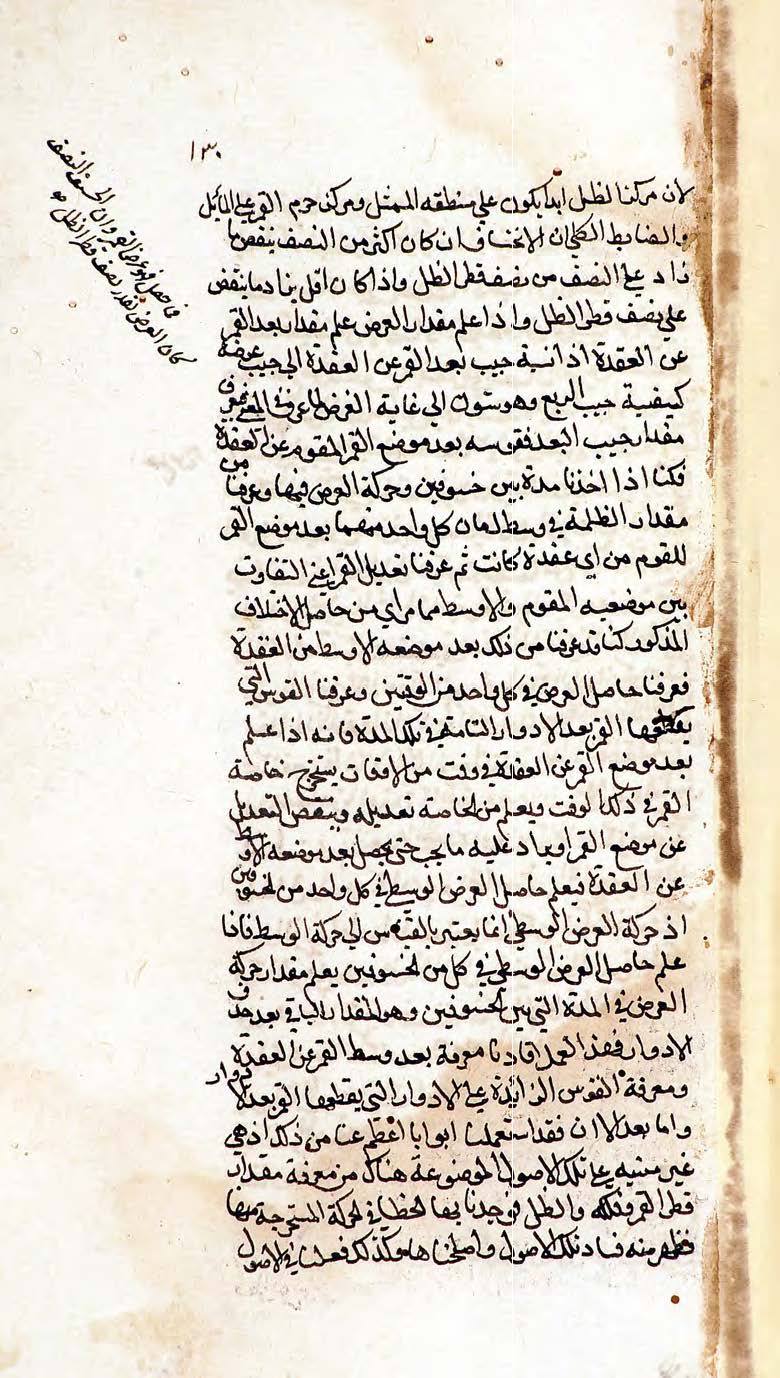 ١٣٠
لان مركز الظل ابدا يكون على منطقه الممثل ومركز جرم القمر على المايل
والضابط الكلي ان الانخساف ان كان اكثر من النصف ينقص ما
زاد على النصف من نصف قطر الظل واذا كان اقل يزاد ما ينقص
على نصف قطر الظل واذا علم مقدار العرض علم مقدار بعد القمر
عن العقدة اذ نسبة جيب بعد القمر عن العقدة الى جيب عرضه
كنسبة جيب الربع وهو ستون الى غاية العرض لما عرف في
مقدار جيب البعد فقوسه بعد موضع القمر المقوم عن العقدة
فكنا اذا اخذنا مدة بين خسوفين وحركة العرض فيها وعرفنا من
مقدار الظلمة في وسط زمان كل واحد منهما بعد موضع القمر
المقوم من اى عقدة كانت ثم عرفنا تعديل القمر اعني التفاوت
بين موضعيه المقوم والاوسط مما مراي من حاصل الاختلاف
المذكور كنا قد عرفنا من ذلك بعد موضعه الاوسط من العقدة
فعرفنا حاصل العرض في كل واحد من الوقتين وعرفنا القوس التي
يقطعها القمر بعد الادوار التامة في تلك المدة فانه اذا علم
بعد موضع القمر عن العقدة في وقت من الاوقات يستخرج خاصة
القمر في ذلك الوقت ويعلم من الخاصة تعديله وينقص التعديل
عن موضع القمر او يزاد عليه ما يجب حتى يحصل بعد موضعه الاوسط
عن العقدة فيعلم حاصل العرض الوسطي في كل واحد من الخسوفين
اذ حركة العرض الوسطي انما يعتبر بالقياس الى حركة الوسط فاذا
علم حاصل العرض الوسطي في كل من الخسوفين يعلم مقدار حركة
العرض في المدة التي بين الخسوفين وهو المقدار الباقي بعد حذف
الادوار فهذا العمل افادنا معرفة بعد وسط القمر عن العقدة
ومعرفة القوس الزايدة على الادوار التي يقطعها القمر بعد الادوار
واما بعد الاان فقد استعملنا ابوابا اعظم عنا من ذلك اذ هي
غير مبنيه على تلك الاصول الموضوعة هناك من معرفة مقدار
قطر القمر وفلكه والظل فوجدنا بها الخطا في الحركة المستخرجة منها
فظهر منه فساد تلك الاصول واصلحناها وكذلك فعلنا في الاصول
فما حصل فهو عرض القمر وان انخسف النصف
كان العرض بقدر نصف قطر الظل